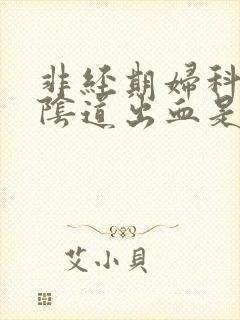 非经期婦科
陰道出血是
艾小貝